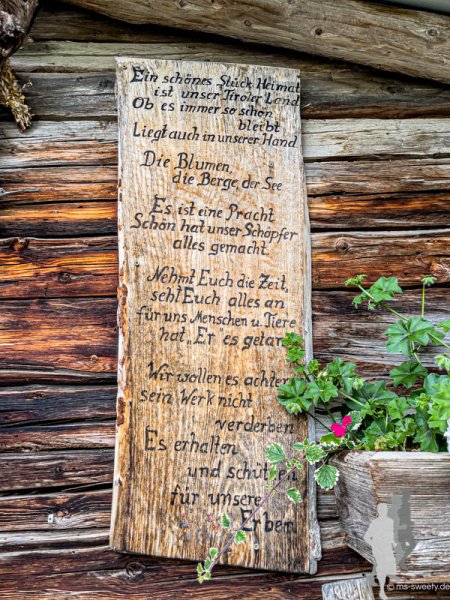 Ein schönes Stück Heimat
ist unser Tiroler Land
Ob es immer so schön
bleibt
Liegt auch in unserer Hand
Die Blumen,
die Berge, der See
Es ist eine Pracht
Schön hat unser Schöpfer
alles gemacht.
Nehmt Euch die Zeit,
seht Euch alles an
für uns Menschen u. Tiere
hat „Er es getan
Wir wollen es achten
sein Werk nicht
verderben
Es erhalten
und schützen
für unsere
Erben
© ms-sweety.de